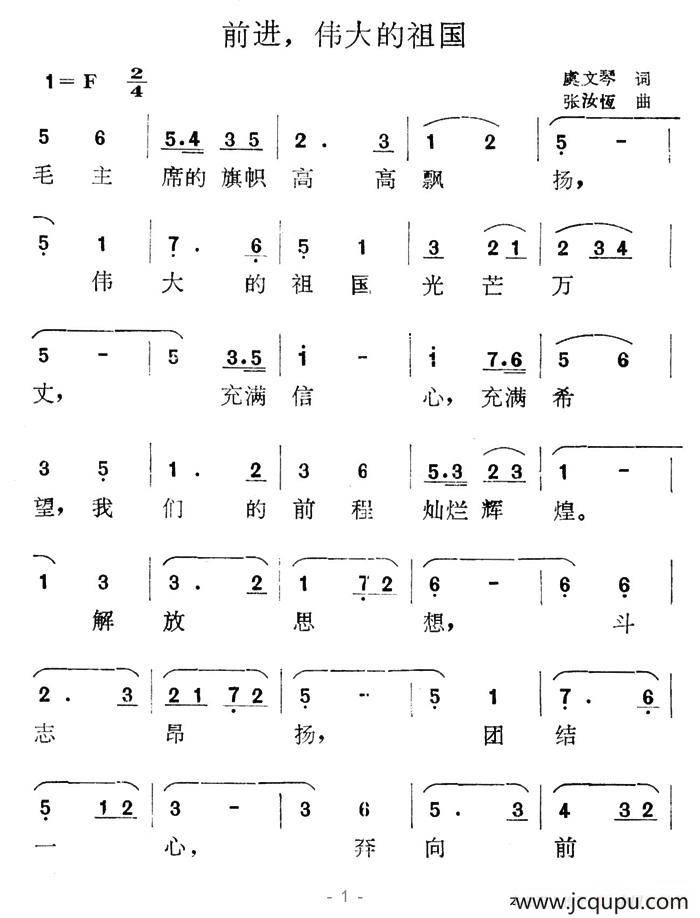 前进，伟大的祖国
1=F 2/4
虞文琴 词
张汝恆 曲
5 6 | 5.4 3 5 | 2. 3 | 1 2 | 5 - |
毛主席的旗帜高高飘扬，
5 1 | 7. 6 | 5 1 | 3 2 1 | 2 3 4 |
伟大的祖国光芒万
5 - | 5 3.5 | i - | i 7.6 | 5 6 |
丈，充满信心，充满希
3 5 | 1. 2 | 3 6 | 5.3 2 3 | 1 - |
望，我们的前程灿烂辉煌。
1 3 | 3. 2 | 1 7 2 | 6 - | 6 6 |
解放思想，斗
2. 3 | 2 1 7 2 | 5 - | 5 1 | 7. 6 |
志昂扬，团结
5 1 2 | 3 - | 3 6 | 5. 3 | 4 3 2 |
一心，奔向前
- 1 -
www.jcqupu.com